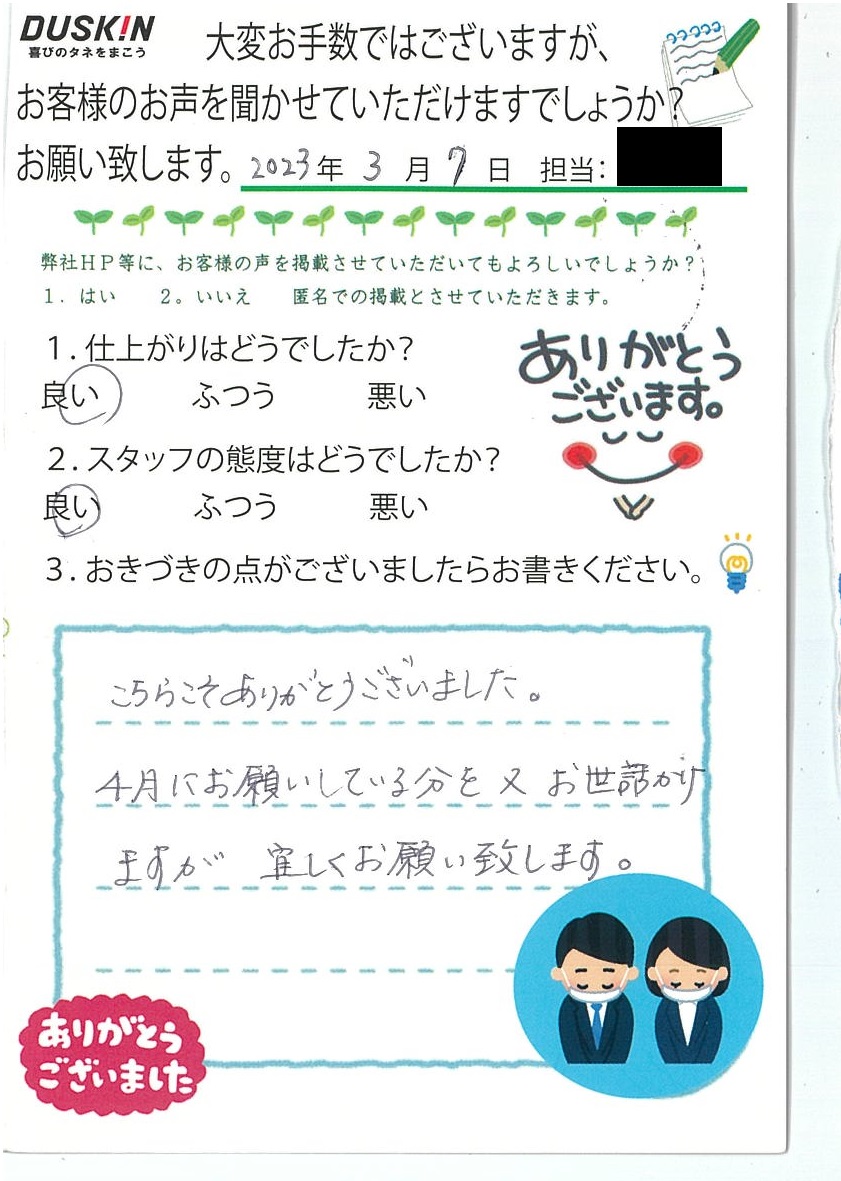 DUSK!N
喜びのタネをまこう
大変お手数ではございますが、
お客様のお声を聞かせていただけますでしょうか?
お願い致します。2023年 3 月 7 日 担当:
弊社HP等に、お客様の声を掲載させていただいてもよろしいでしょうか?
1. はい 2。いいえ 匿名での掲載とさせていただきます。
1.仕上がりはどうでしたか?
良い ふつう 悪い
ありがとう
ございます。
2.スタッフの態度はどうでしたか?
良い ふつう 悪い
3.おきづきの点がございましたらお書きください。
こちらこそありがとうございました。
4月にお願いしている分を又 お世話かけ
ますが 宜しくお願い致します。
ありがとう
ございました